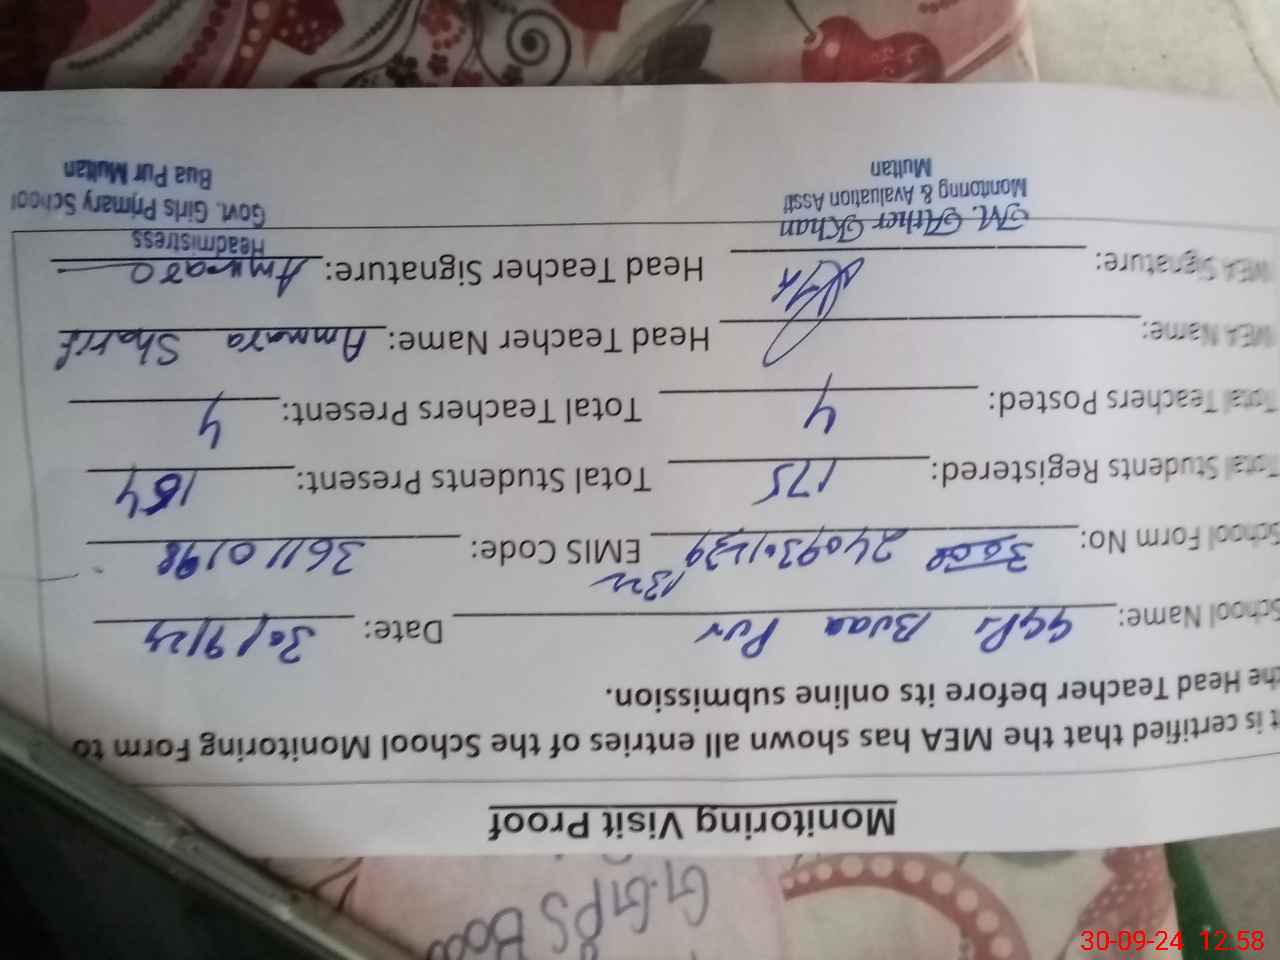 G.GPS
Monitoring Visit Proof
t is certified that the MEA has shown all entries of the School Monitoring Form to
the Head Teacher before its online submission.
School Name: GGPS Buaa Pur Date: 30/9/24
School Form No: EMIS Code: 36110198
Total Students Registered: 175 Total Students Present: 164
Total Teachers Posted: 4 Total Teachers Present: 4
MEA Name: Head Teacher Name: Ammara Sharif
MEA Signature: Head Teacher Signature: Ammara
M. Ather Khan
Monitoring & Avaluation Asstt
Multan
Headmistress
Govt. Girls Primary School
Bua Pur Multan
30-09-24 12:58